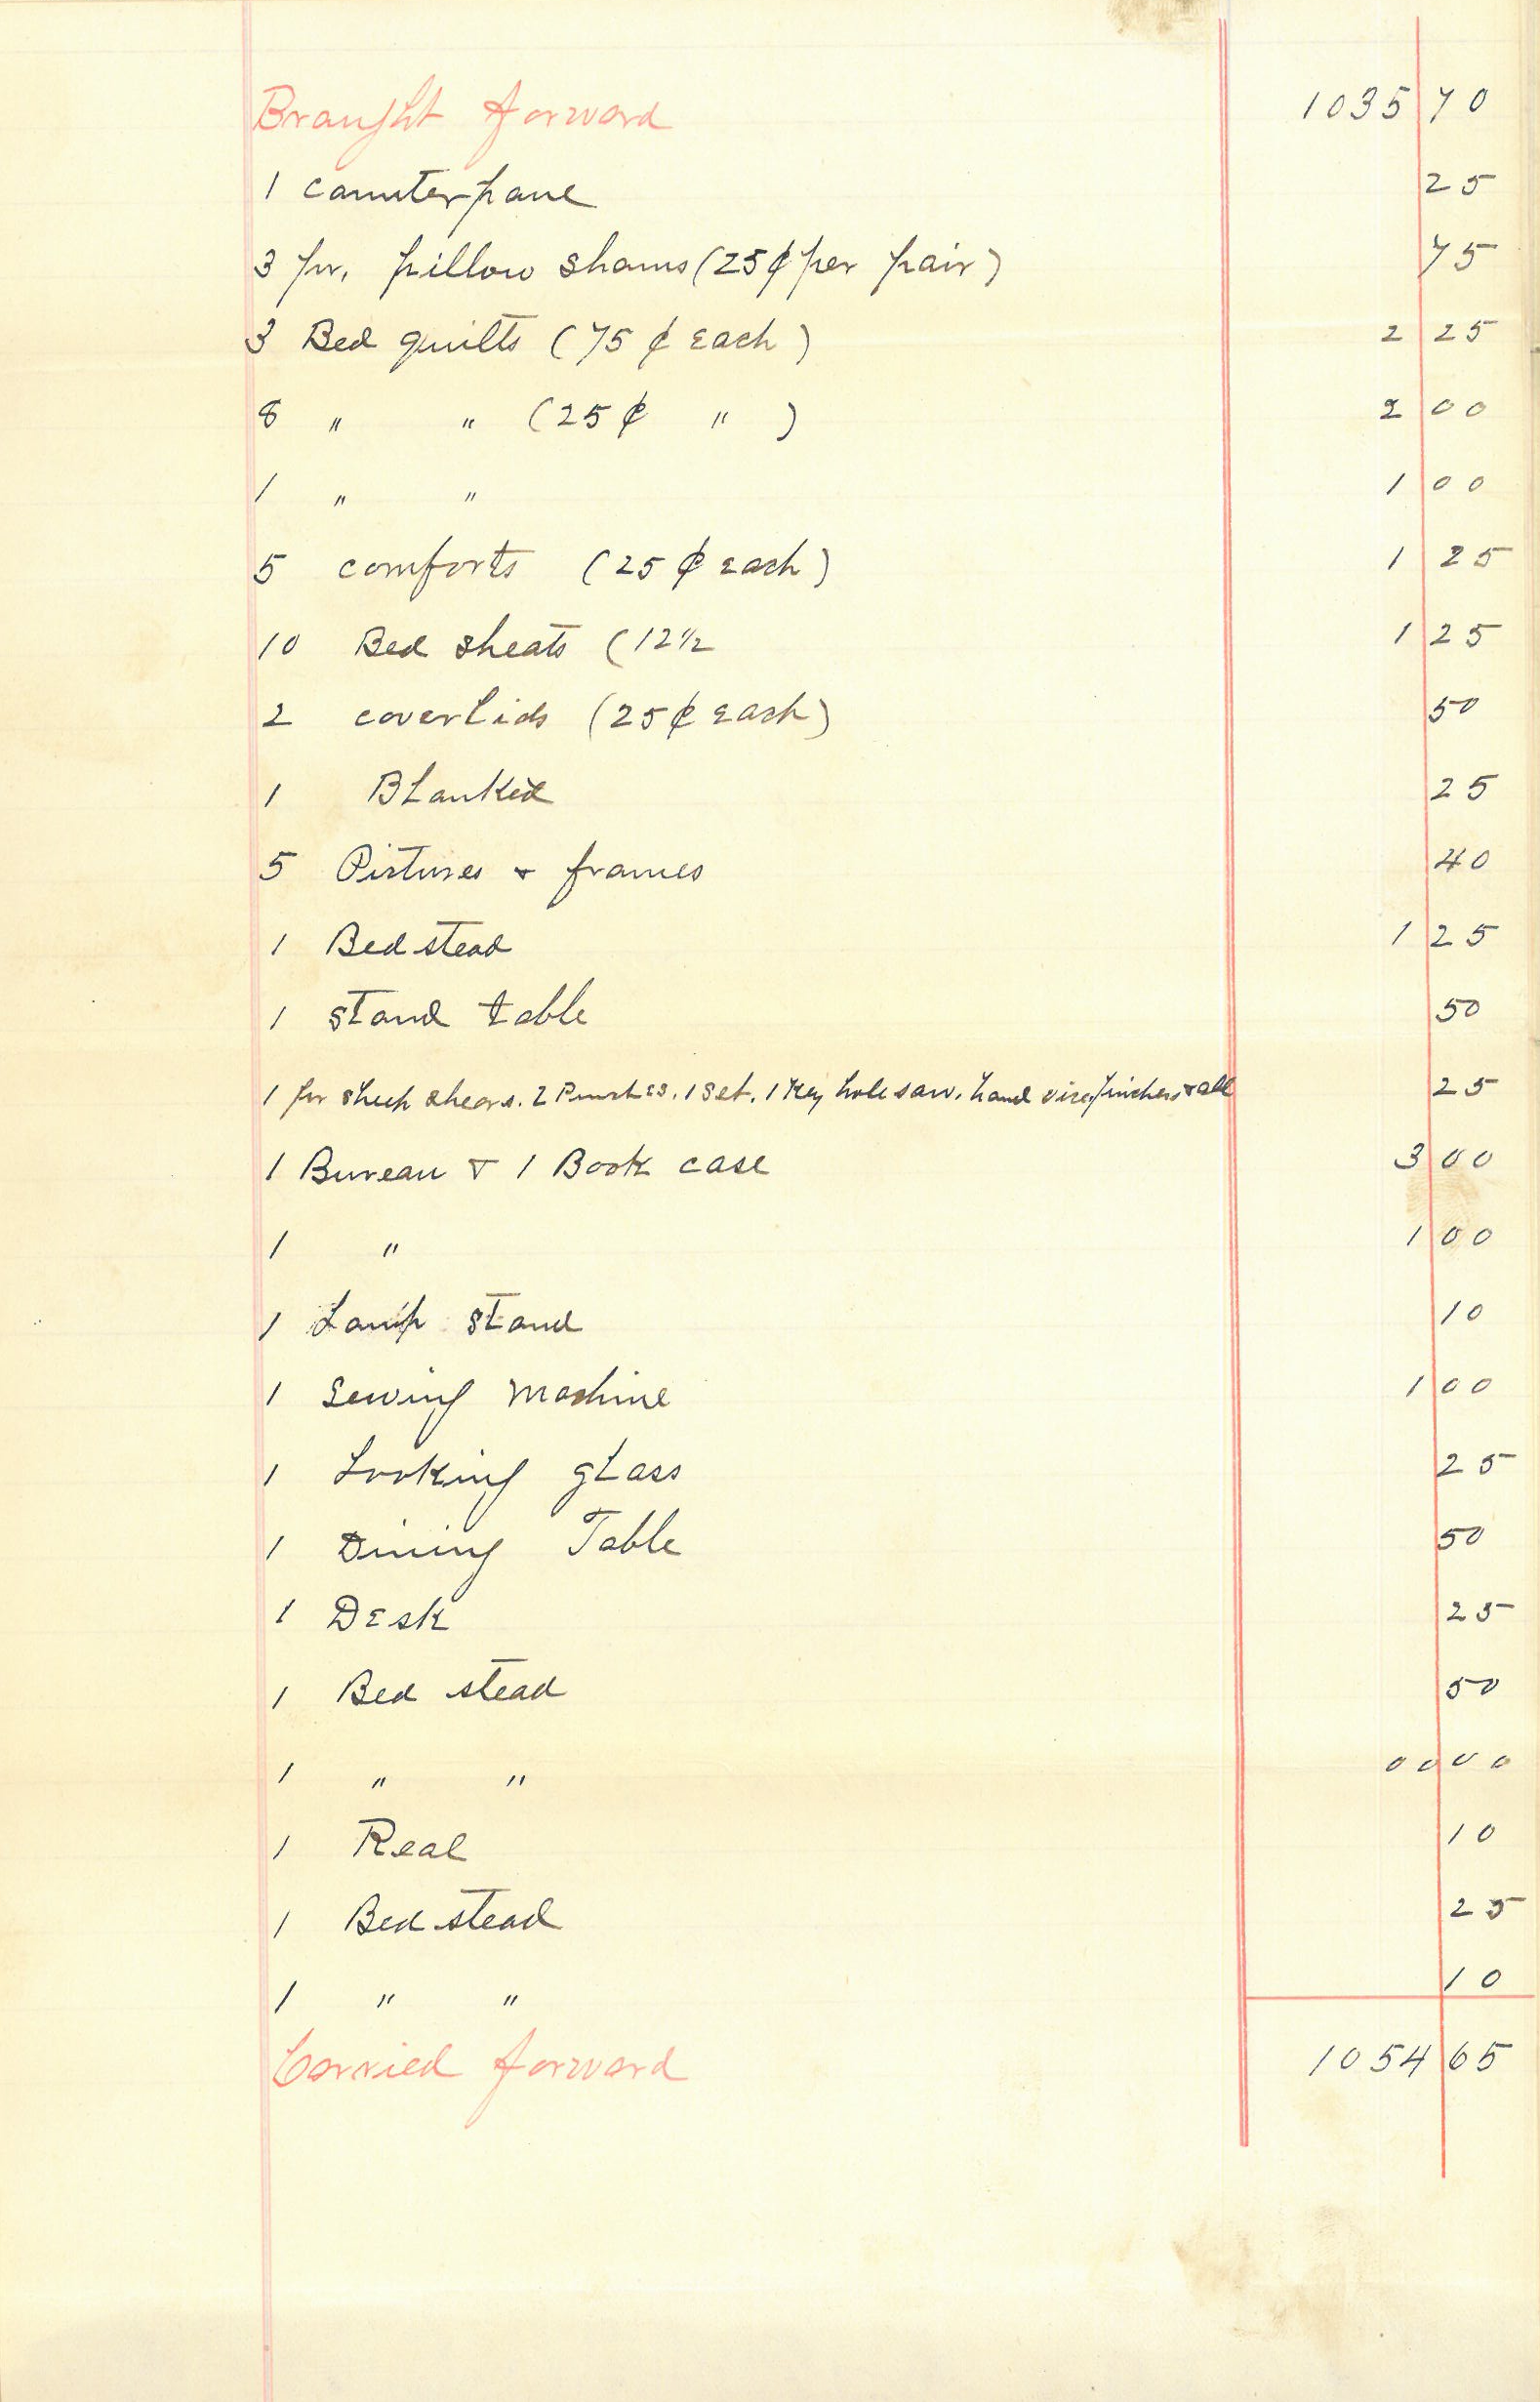 Braught forward 1035 70
1 counterpane 25
3 pr. pillow shams (25¢ per pair) 75
3 Bed quilts (75¢ each) 2 25
8 " " (25¢ " ) 2 00
1 " " 1 00
5 comforts (25¢ each) 1 25
10 Bed sheats (12½ 1 25
2 coverlids (25¢ each) 50
1 Blanket 25
5 Pictures & frames 40
1 Bed stead 1 25
1 stand table 50
1 pr sheep shears. 2 Punches. 1 Set. 1 Key hole saw. hand vise, pinchers & all 25
1 Bureau & 1 Book case 3 00
1 " 1 00
1 Lamp stand 10
1 Sewing Machine 1 00
1 Looking glass 25
1 Dining Table 50
1 Desk 25
1 Bed stead 50
1 " " 00 00
1 Real 10
1 Bed stead 25
1 " " 10
Carried forward 1054 65